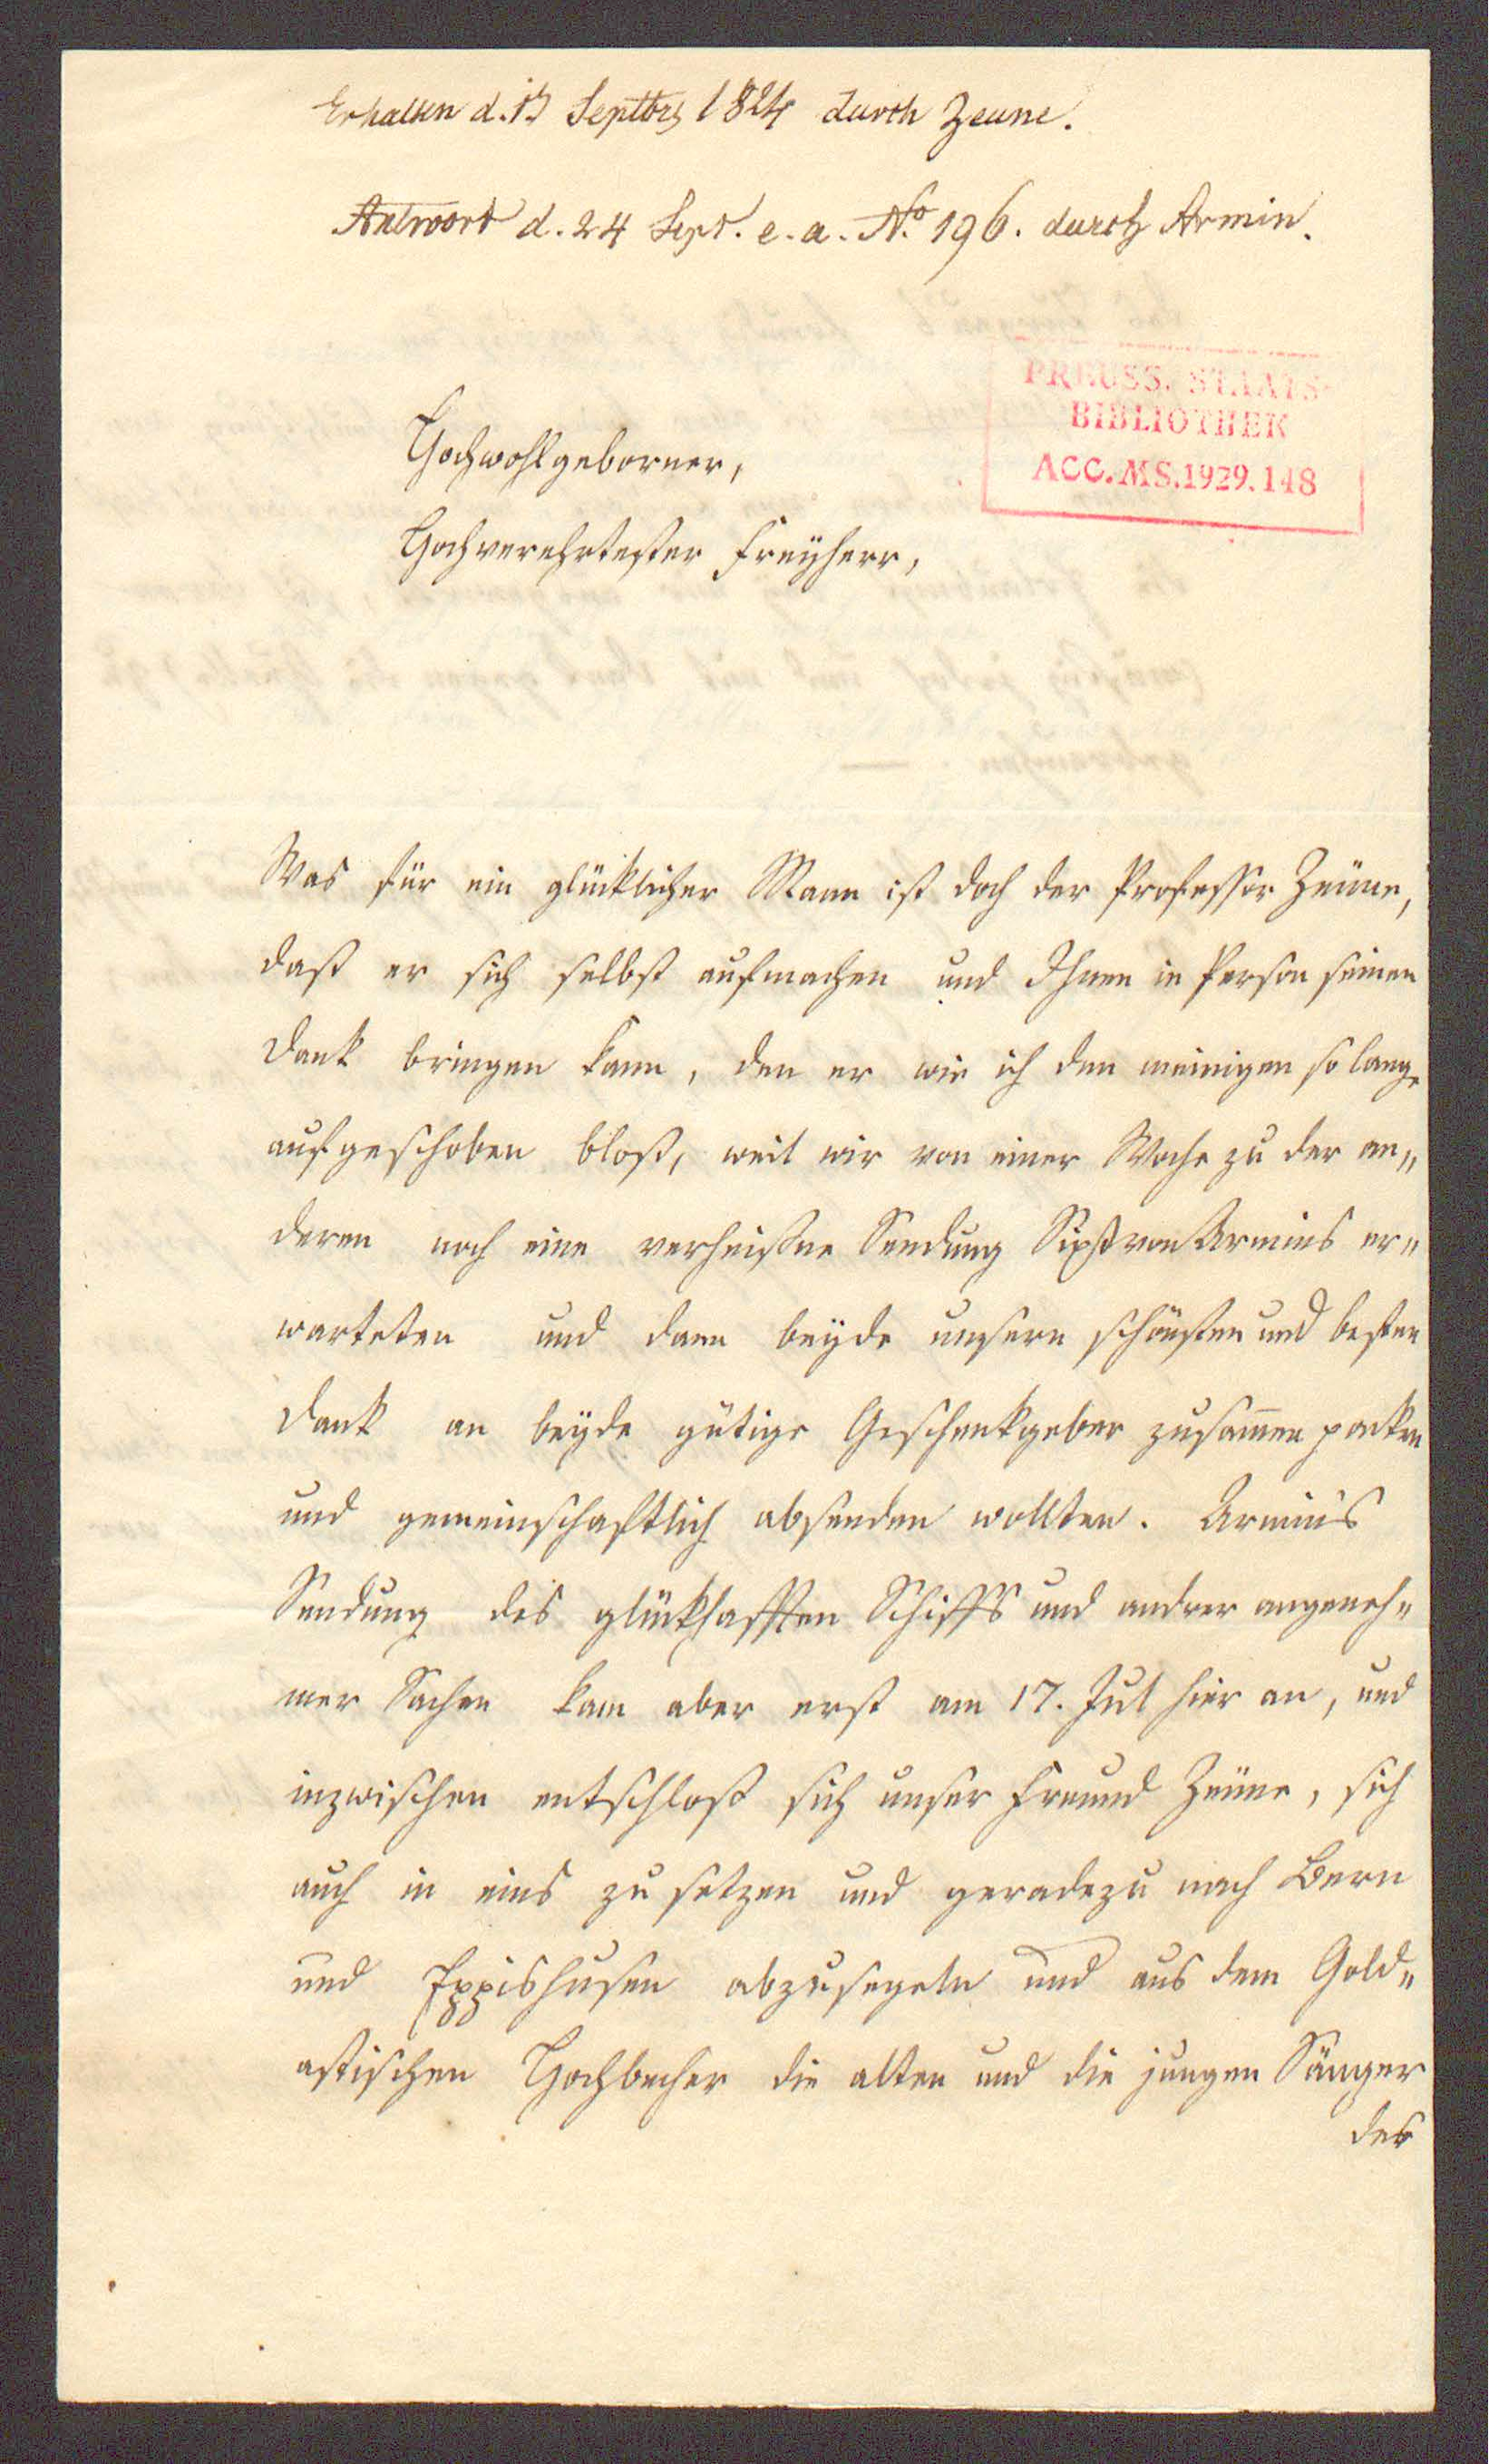 Erhalten d. 13 Septbrs 1824 durch Zeune.
Antwort d. 24 Sept. e. a. No 196. durch Armin.
PREUSS. STAATS-
BIBLIOTHEK
ACC. MS. 1929. 148
Hochwohlgeborner,
Hochverehrtester Freyherr,
Was für ein glücklicher Mann ist doch der Professor Zeune,
daß er sich selbst aufmachen und Ihnen in Person seinen
Dank bringen kann, den er wie ich den meinigen so lange
aufgeschoben bloß, weil wir von einer Woche zu der an„
deren noch eine verheißne Sendung Sixt von Armins er„
warteten und dann beyde unsern schönsten und besten
Dank an beyde gütige Geschenkgeber zusammen packen
und gemeinschaftlich absenden wollten. Armins
Sendung des glückhafften Schiffs und andrer angeneh„
mer Sachen kam aber erst am 17. Jul hier an, und
inzwischen entschloß sich unser Freund Zeune, sich
auch in eins zu setzen und geradezu nach Bern
und Eppishusen abzusegeln und aus dem Gold„
astischen Hochbecher die alten und die jungen Sänger
des